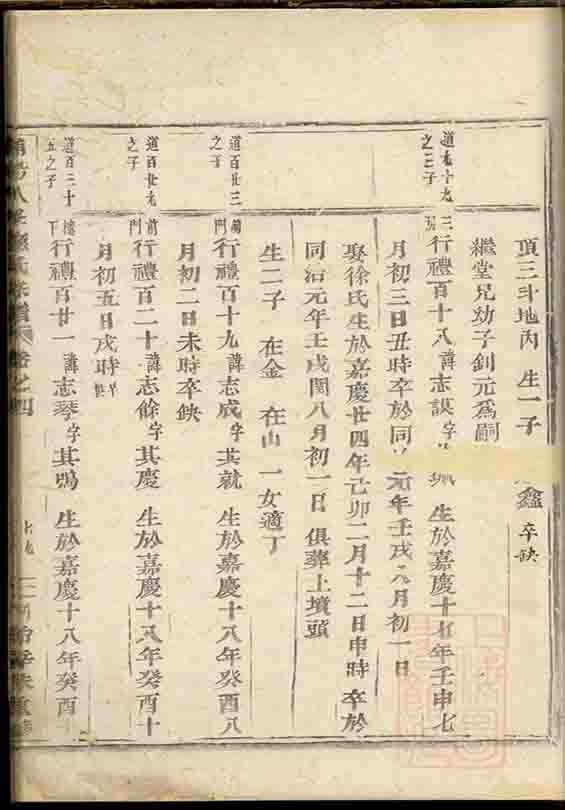 頂三斗地丙 生一子 鑫 卒缺
繼堂兄幼子釗元爲嗣
道九十九之三子 三房 行禮百十八 諱志謨 字 珮 生於嘉慶十七年壬申七
月初三日丑時卒於同治元年壬戌八月初一日
娶徐氏生於嘉慶廿四年己卯二月十二日申時 卒於
同治元年壬戌閏八月初一日 俱葬上墳頭
生二子 在金 在山 一女適丁
道百廿三之子 前門 行禮百十九 諱志成 字其就 生於嘉慶十八年癸酉八
月初二日未時卒缺
道百廿九之子 前門 行禮百二十 諱志餘 字其慶 生於嘉慶十八年癸酉十
月初五日戌時 卒缺
道百三十五之子 樓下 行禮百廿一 諱志琴 字其鳴 生於嘉慶十八年癸酉
卷之四